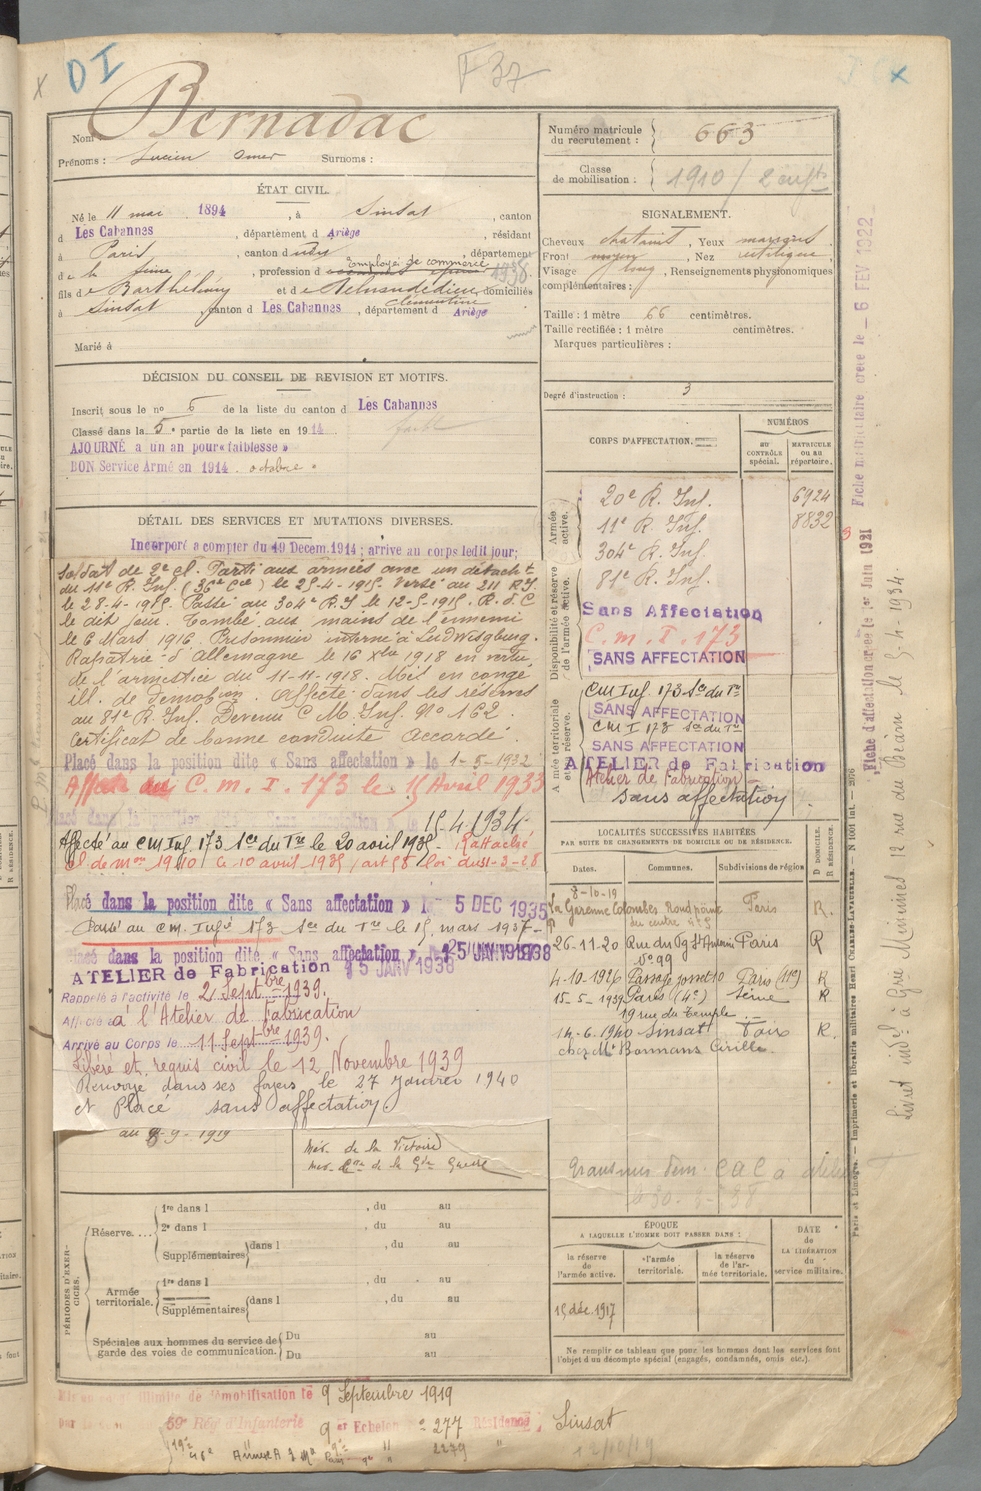 D I
F 37
Nom : Bernadac
Prénoms : Lucien Omer Surnoms :
Numéro matricule du recrutement : 663
Classe de mobilisation : 1910 / 2 enfts
ÉTAT CIVIL.
Né le 11 mai 1894, à Sinsat, canton
d Les Cabannes, département d Ariège, résidant
à Paris, canton d, département
d e la Seine, profession d employé de commerce 1938
fils d e Barthélemy et d e clémentine domiciliés
à Sinsat, canton d Les Cabannes, département d Ariège
Marié à
SIGNALEMENT.
Cheveux chatains, Yeux marrons
Front moyen, Nez
Visage long, Renseignements physionomiques
complémentaires :
Taille : 1 mètre 66 centimètres.
Taille rectifiée : 1 mètre centimètres.
Marques particulières :
Degré d'instruction : 3
DÉCISION DU CONSEIL DE REVISION ET MOTIFS.
Inscrit sous le n° 6 de la liste du canton d Les Cabannes
Classé dans la 5e partie de la liste en 1914
AJOURNÉ a un an pour « faiblesse »
BON Service Armé en 1914 octobre
DÉTAIL DES SERVICES ET MUTATIONS DIVERSES.
Incorporé a compter du 19 Decem. 1914 ; arrivé au corps ledit jour;
Soldat de 2e cl. Parti aux armées avec un détacht
du 11e R. Inf. (36e Cie) le 25-4-1915. Versé au 211 R.I.
le 28-4-1915. Passé au 304e R.I le 12-5-1915. R. d. C
le dit jour. Tombé aux mains de l'ennemi
le 6 Mars 1916. Prisonnier interné à Ludwisgburg.
Rapatrié d'Allemagne le 16 Xbre 1918 en vertu
de l'armistice du 11-11-1918. Mis en congé
ill. de démobion. Affecté dans les réserves
au 81e R. Inf. Devenu C M. Inf. N° 162.
Certificat de bonne conduite accordé.
Placé dans la position dite « Sans affectation » le 1-5-1932
Affecté au C. m. I. 173 le 15 Avril 1933
Placé dans la position dite « Sans affectation » le 15-4-1934
Affecté au CM Inf. 173 Son du Tre le 20 avril 1935. Rattaché
Cl de mon 1910 le 10 avril 1935 (art 58 loi du 31-3-28
Placé dans la position dite « Sans affectation » le 5 DEC 1935
Passé au C.M. Infie 173 Son du Tre le 15 mars 1937
Placé dans la position dite « Sans affectation » 15 JANV 1938
ATELIER de Fabrication 15 JANV 1938
Rappelé à l'activité le 2 Septbre 1939.
Affecté à l'Atelier de Fabrication
Arrivé au Corps le 11 Septbre 1939.
Libéré et requis civil le 12 Novembre 1939
Renvoyé dans ses foyers le 27 Janvier 1940
et Placé sans affectation.
au 9-9-1919
Med. de la Victoire
Med. Cve de la Gde Guerre
CORPS D'AFFECTATION.
NUMÉROS
AU CONTRÔLE spécial.
MATRICULE ou au répertoire.
Armée active.
20e R. Inf. 6924
11e R. Inf. 8832
304e R. Inf.
Disponibilité et réserve de l'armée active.
81e R. Inf.
Sans Affectation
C. m. I. 173
SANS AFFECTATION
Armée territoriale et réserve.
CM Inf. 173 Son du Tre
SANS AFFECTATION
CM I 173 Son du Tre
SANS AFFECTATION
ATELIER de Fabrication
Atelier de Fabrication
Sans affectation
LOCALITÉS SUCCESSIVES HABITÉES
PAR SUITE DE CHANGEMENTS DE DOMICILE OU DE RÉSIDENCE.
Dates. Communes. Subdivisions de région D DOMICILE. R RÉSIDENCE.
8-10-19 La Garenne Colombes Rond point du centre n° 5 Paris R.
26-11-20 Rue du Fg St Antoine N° 99 Paris R
4-10-1926 Passage josset 10 Paris (11e) R
15-5-1939 Paris (4e) Seine R
19 rue du Temple
14-6-1940 Sinsat Foix R.
chez Mr Bonmans Cirille.
ÉPOQUE
A LAQUELLE L'HOMME DOIT PASSER DANS :
la réserve de l'armée active. l'armée territoriale. la réserve de l'armée territoriale.
DATE de LA LIBÉRATION du service militaire.
15 déc. 1917
Ne remplir ce tableau que pour les hommes dont les services font
l'objet d'un décompte spécial (engagés, condamnés, omis etc.).
PÉRIODES D'EXERCICES.
Réserve.... 1re dans l, du au
2e dans l, du au
Supplémentaires dans l, du au
Armée territoriale. 1re dans l, du au
Supplémentaires dans l, du au
Spéciales aux hommes du service de garde des voies de communication. Du au
Du au
Mis en congé illimité de démobilisation le 9 Septembre 1919
59e Rég d'Infanterie 9er Echelon n° 277 Résidence Sinsat
12/10/19
Fiche matriculaire créée le 6 FEV 1922
Fiche d'affectation créée le 1er Juin 1921
Livret indel à Grié Minimes 12 rue du Béarn le 5-4-1934.
Paris et Limoges. — Imprimerie et librairie militaires Henri CHARLES-LAVAUZELLE.